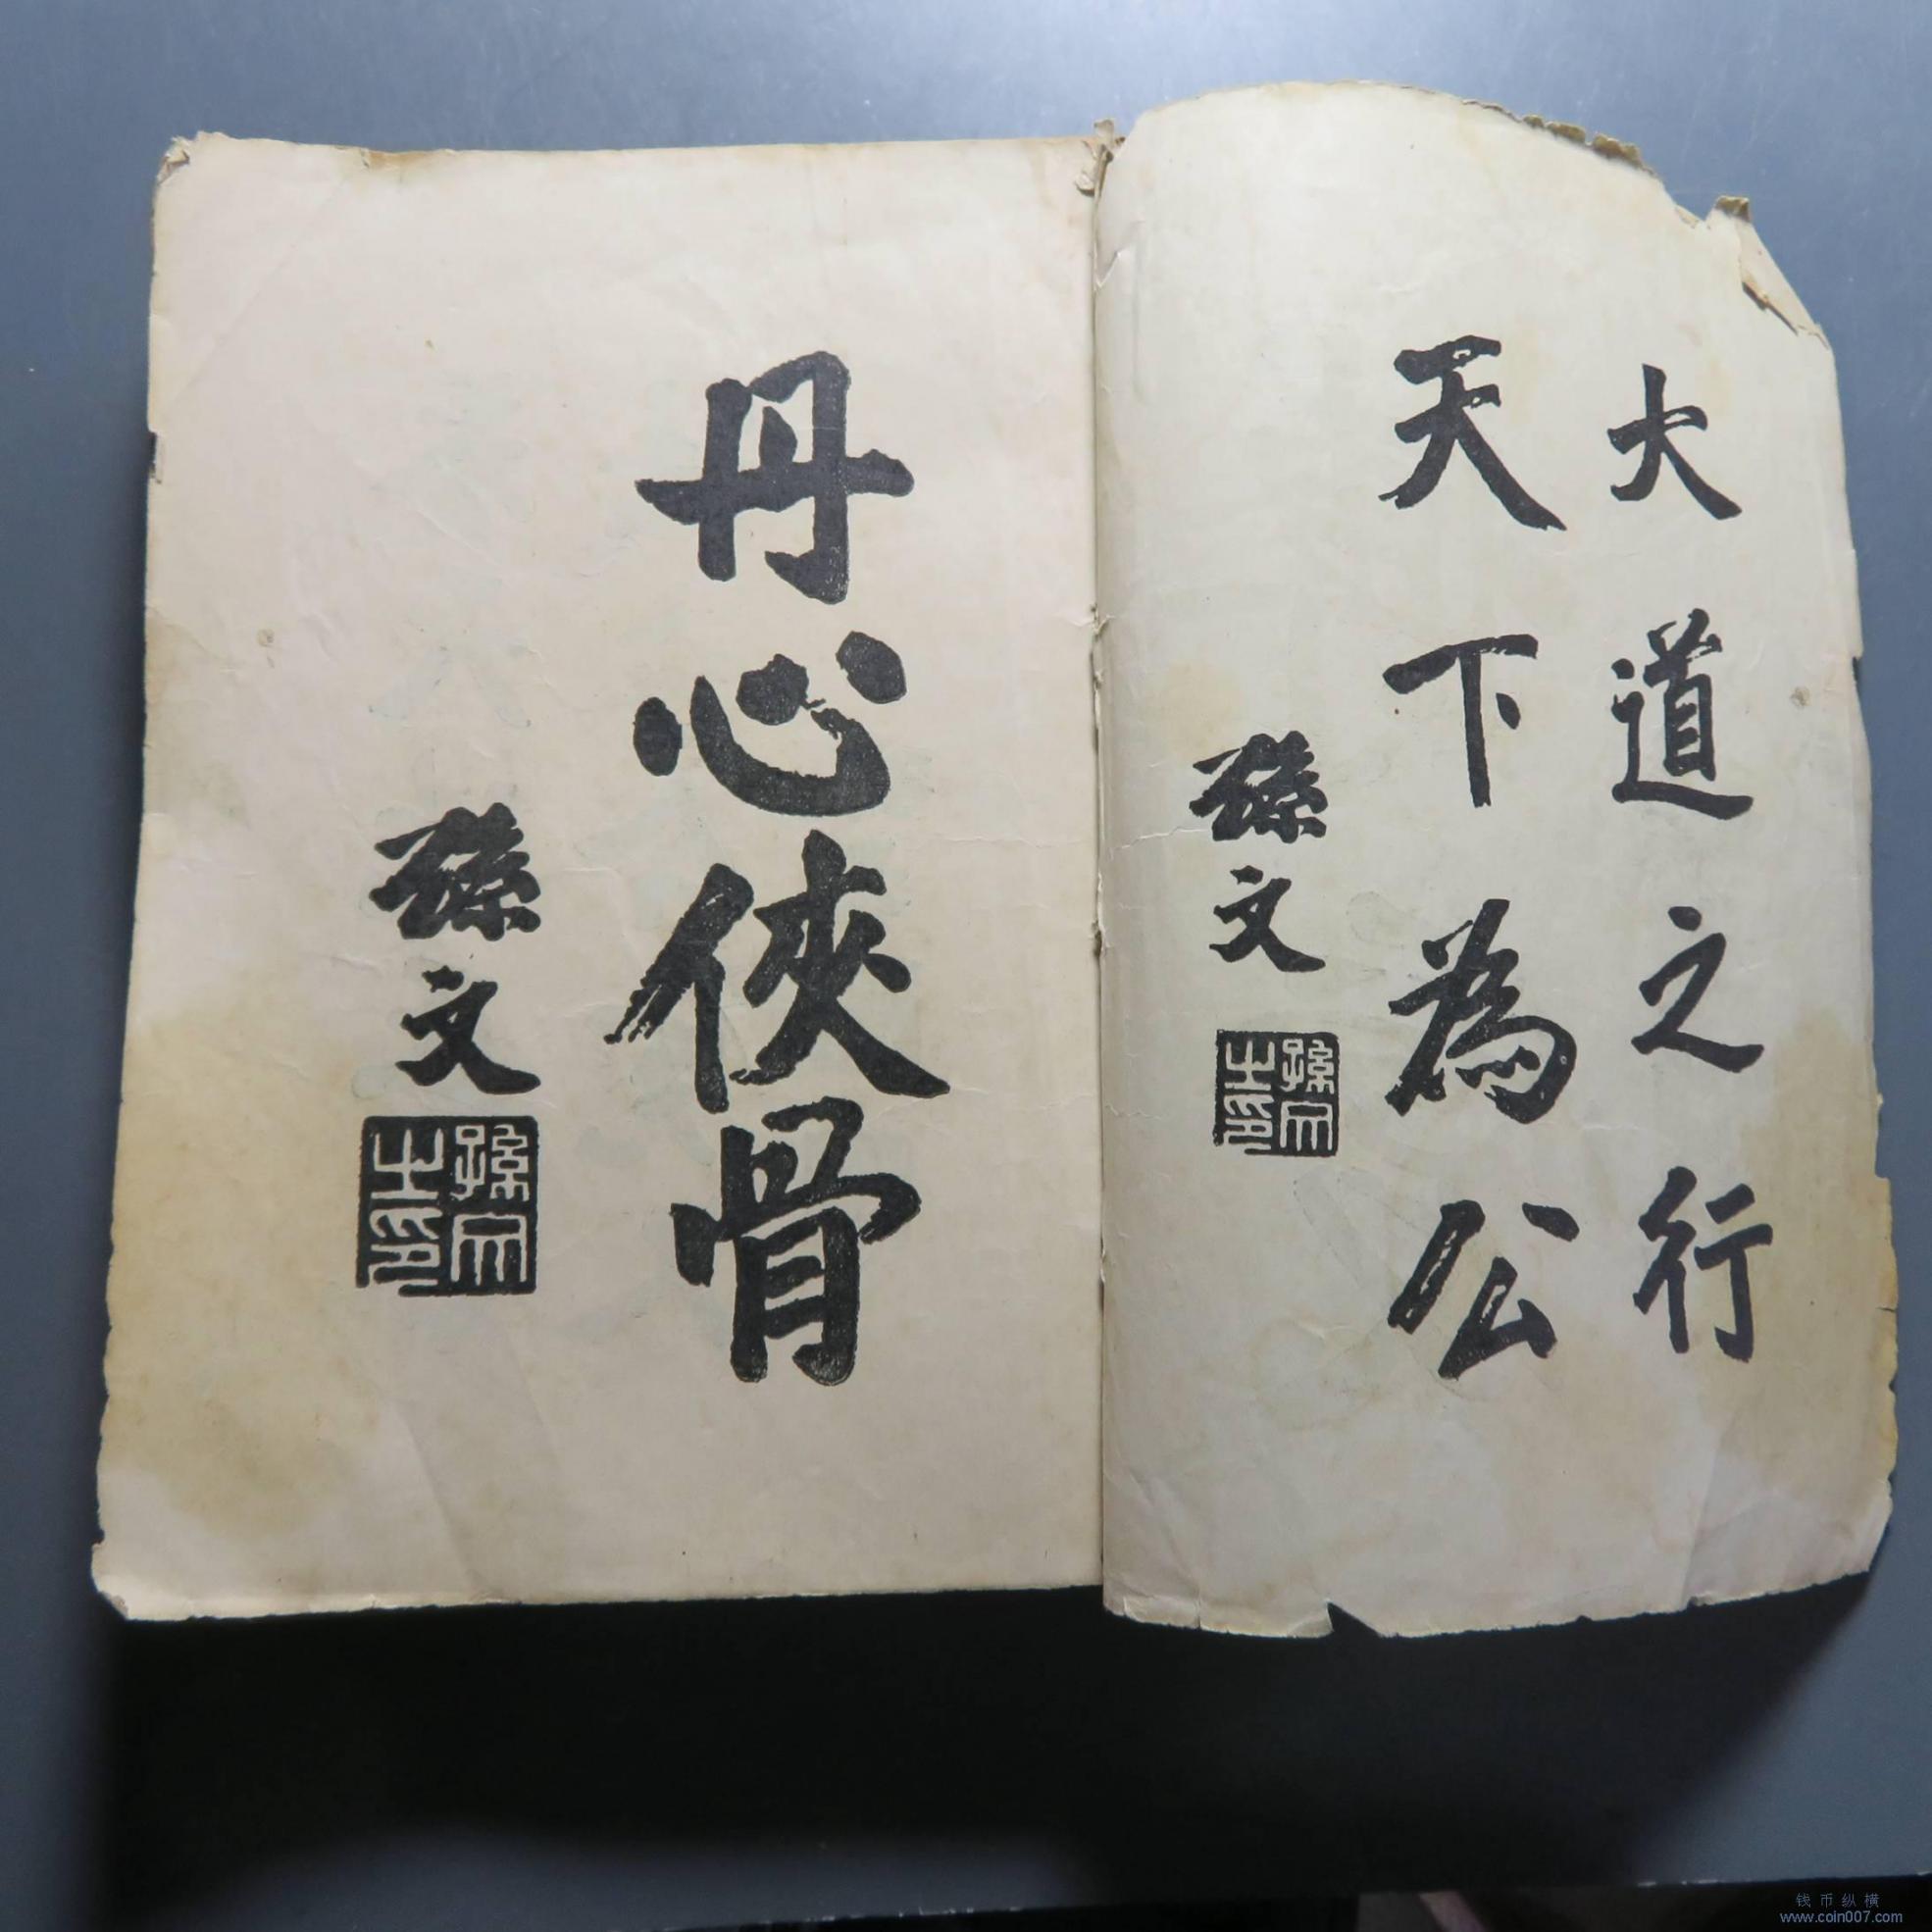 大道之行
天下為公
孫文
孫文之印
丹心俠骨
孫文
孫文之印
钱币纵横
www.coin007.com